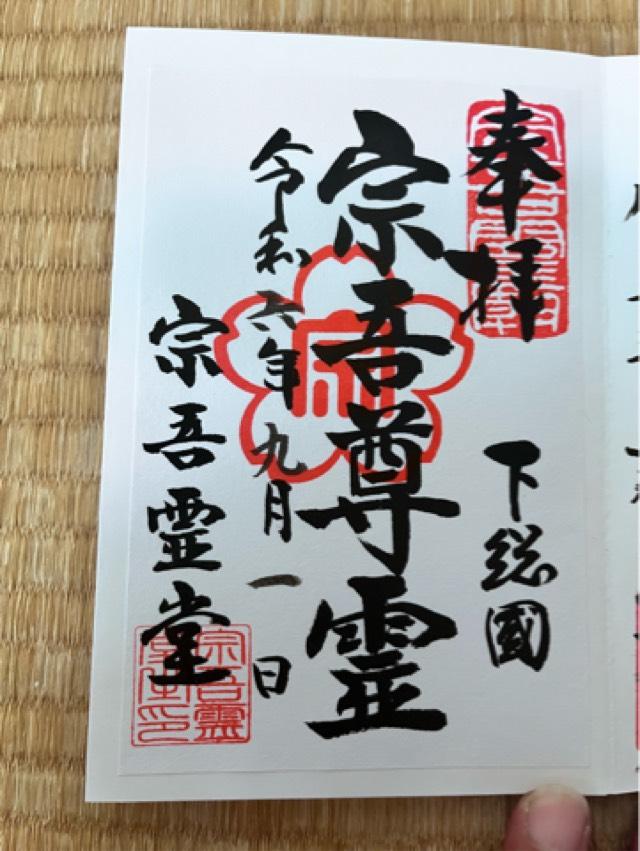 奉拝
下総國
宗吾尊霊
令和六年九月一日
宗吾霊堂